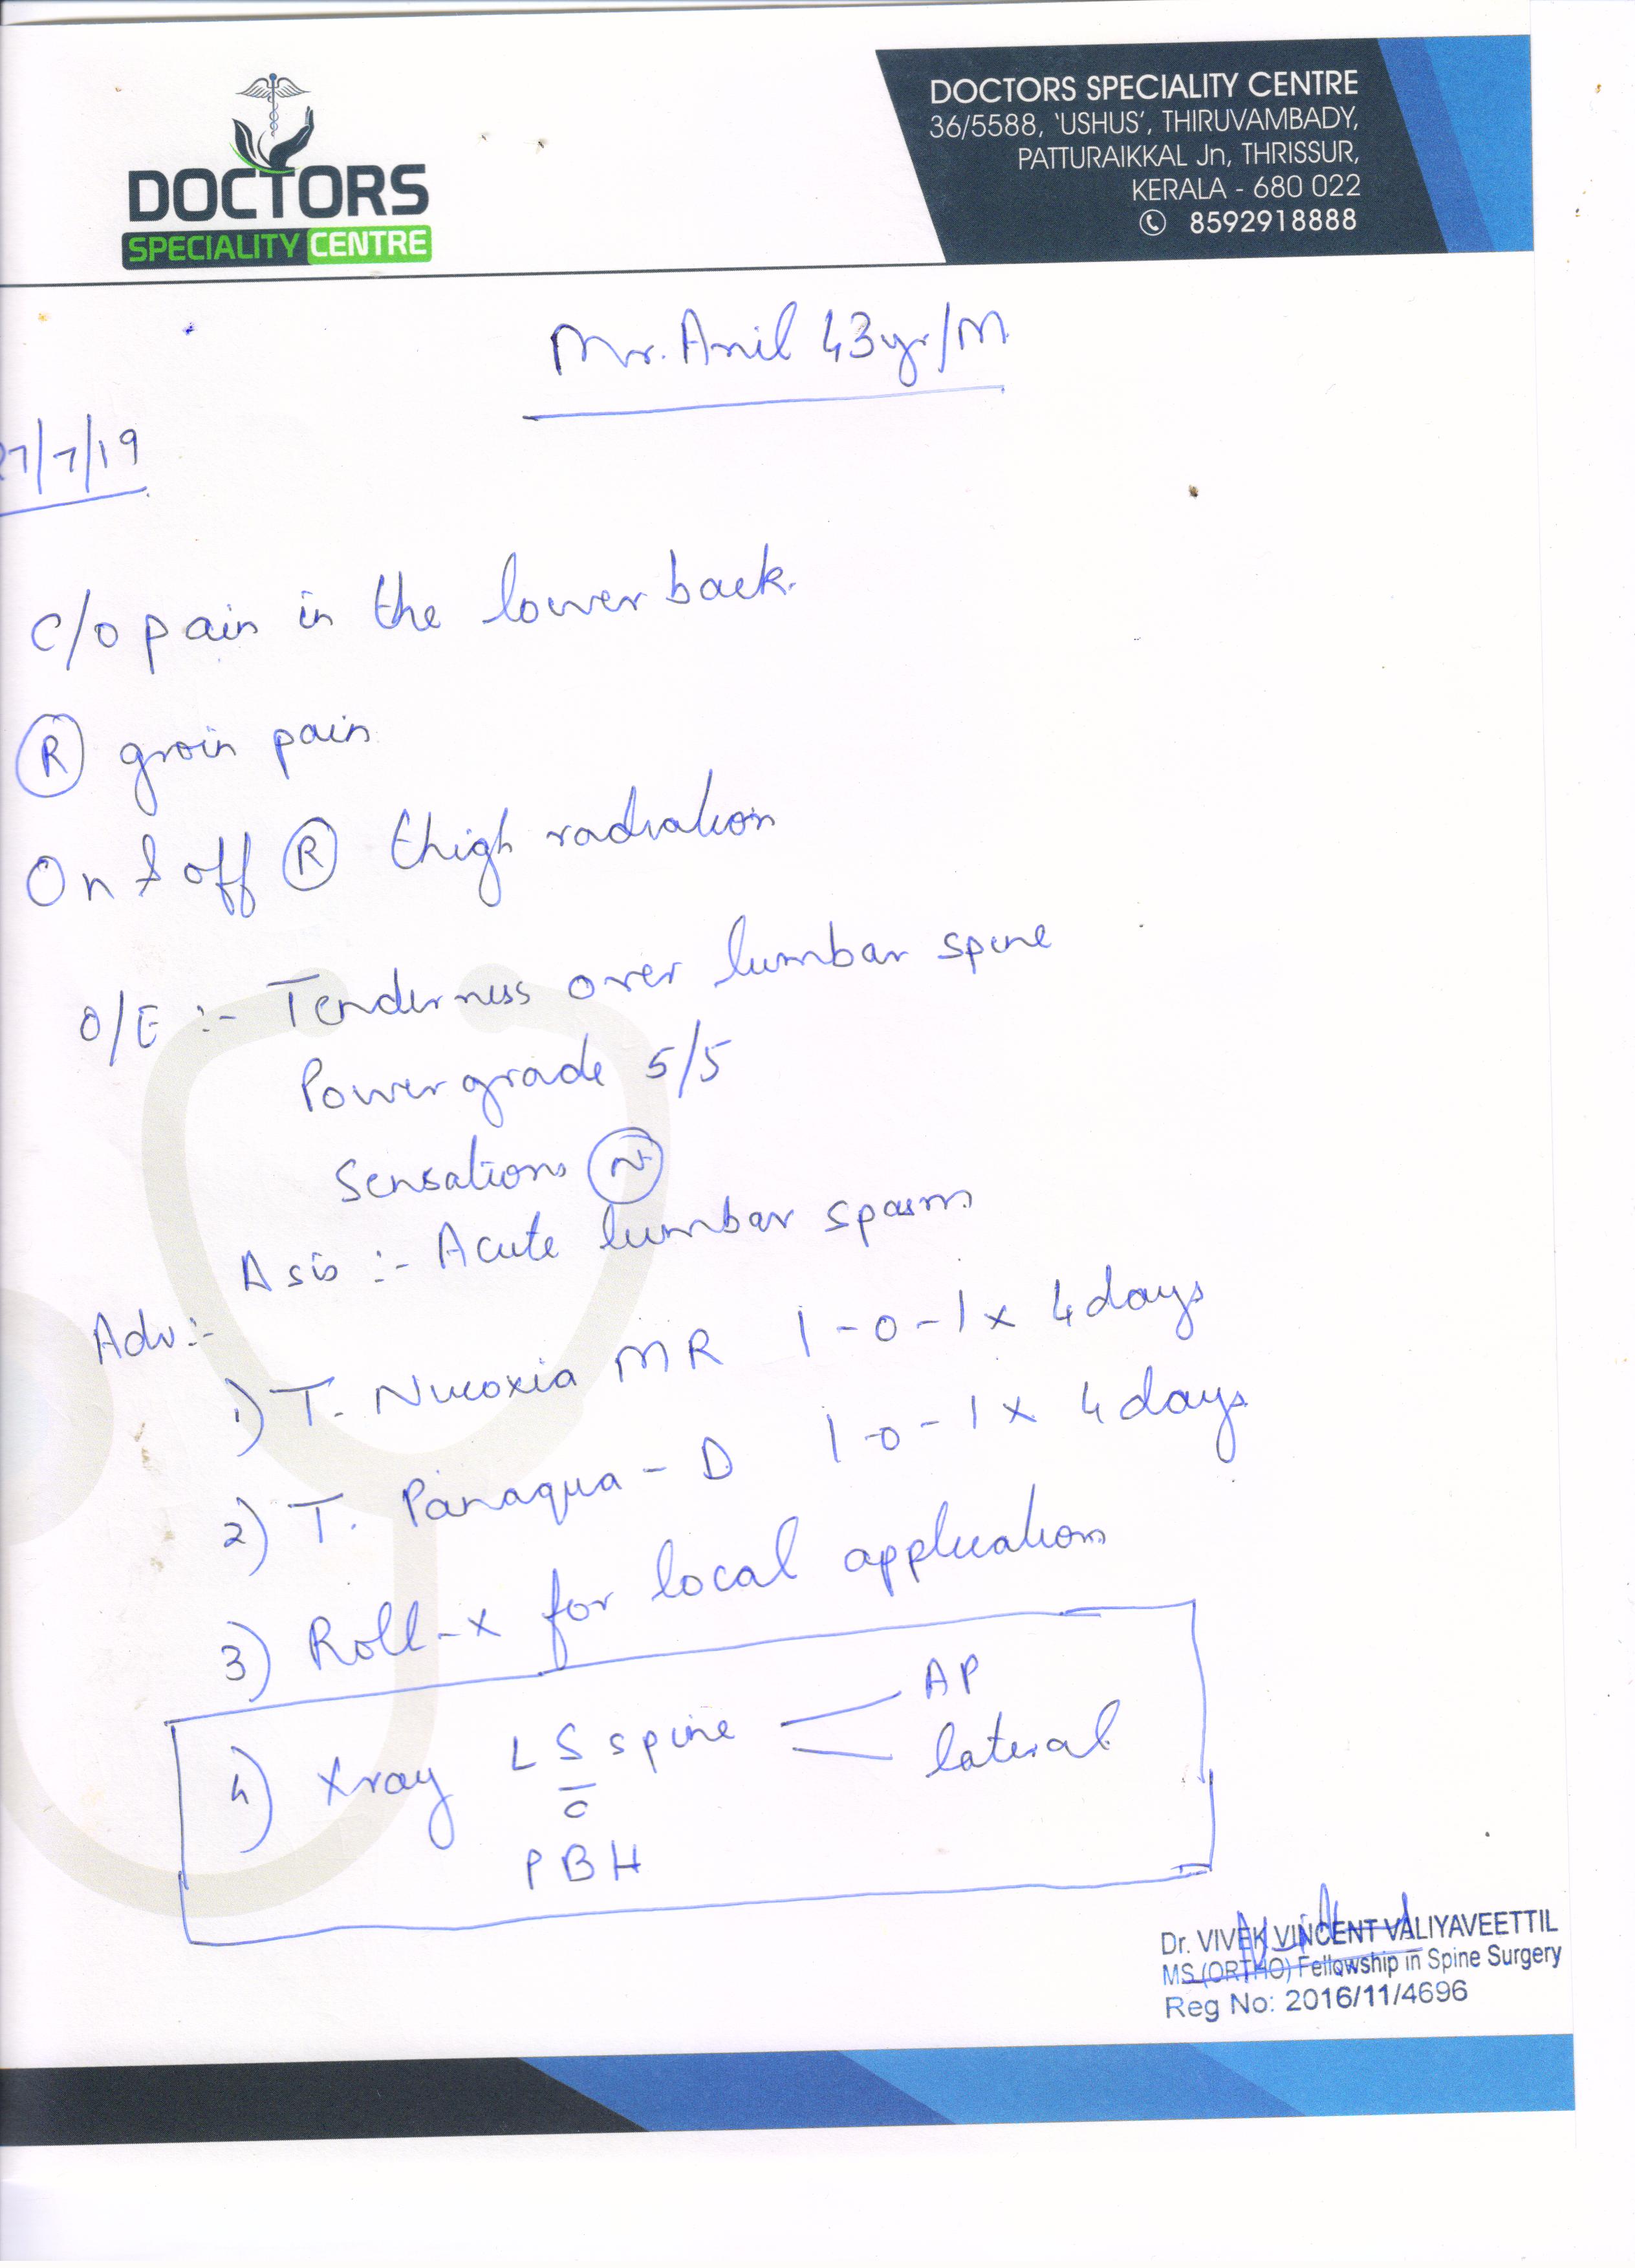 DOCTORS
SPECIALITY CENTRE
DOCTORS SPECIALITY CENTRE
36/5588, 'USHUS', THIRUVAMBADY,
PATTURAIKKAL Jn, THRISSUR,
KERALA - 680 022
8592918888
Mr. Anil 43yr/M
27/7/19
C/o pain in the lower back.
R groin pain
On & off R thigh radiation
O/E :- Tenderness over lumbar spine
Power grade 5/5
Sensations N
Asis :- Acute lumbar spasm
Adv:-
1) T. Nucoxia MR 1-0-1 x 4 days
2) T. Panaqua - D 1-0-1 x 4 days
3) Roll-x for local application
4) Xray LS spine AP
lateral
c
PBH
Dr. VIVEK VINCENT VALIYAVEETTIL
MS (ORTHO) Fellowship in Spine Surgery
Reg No: 2016/11/4696